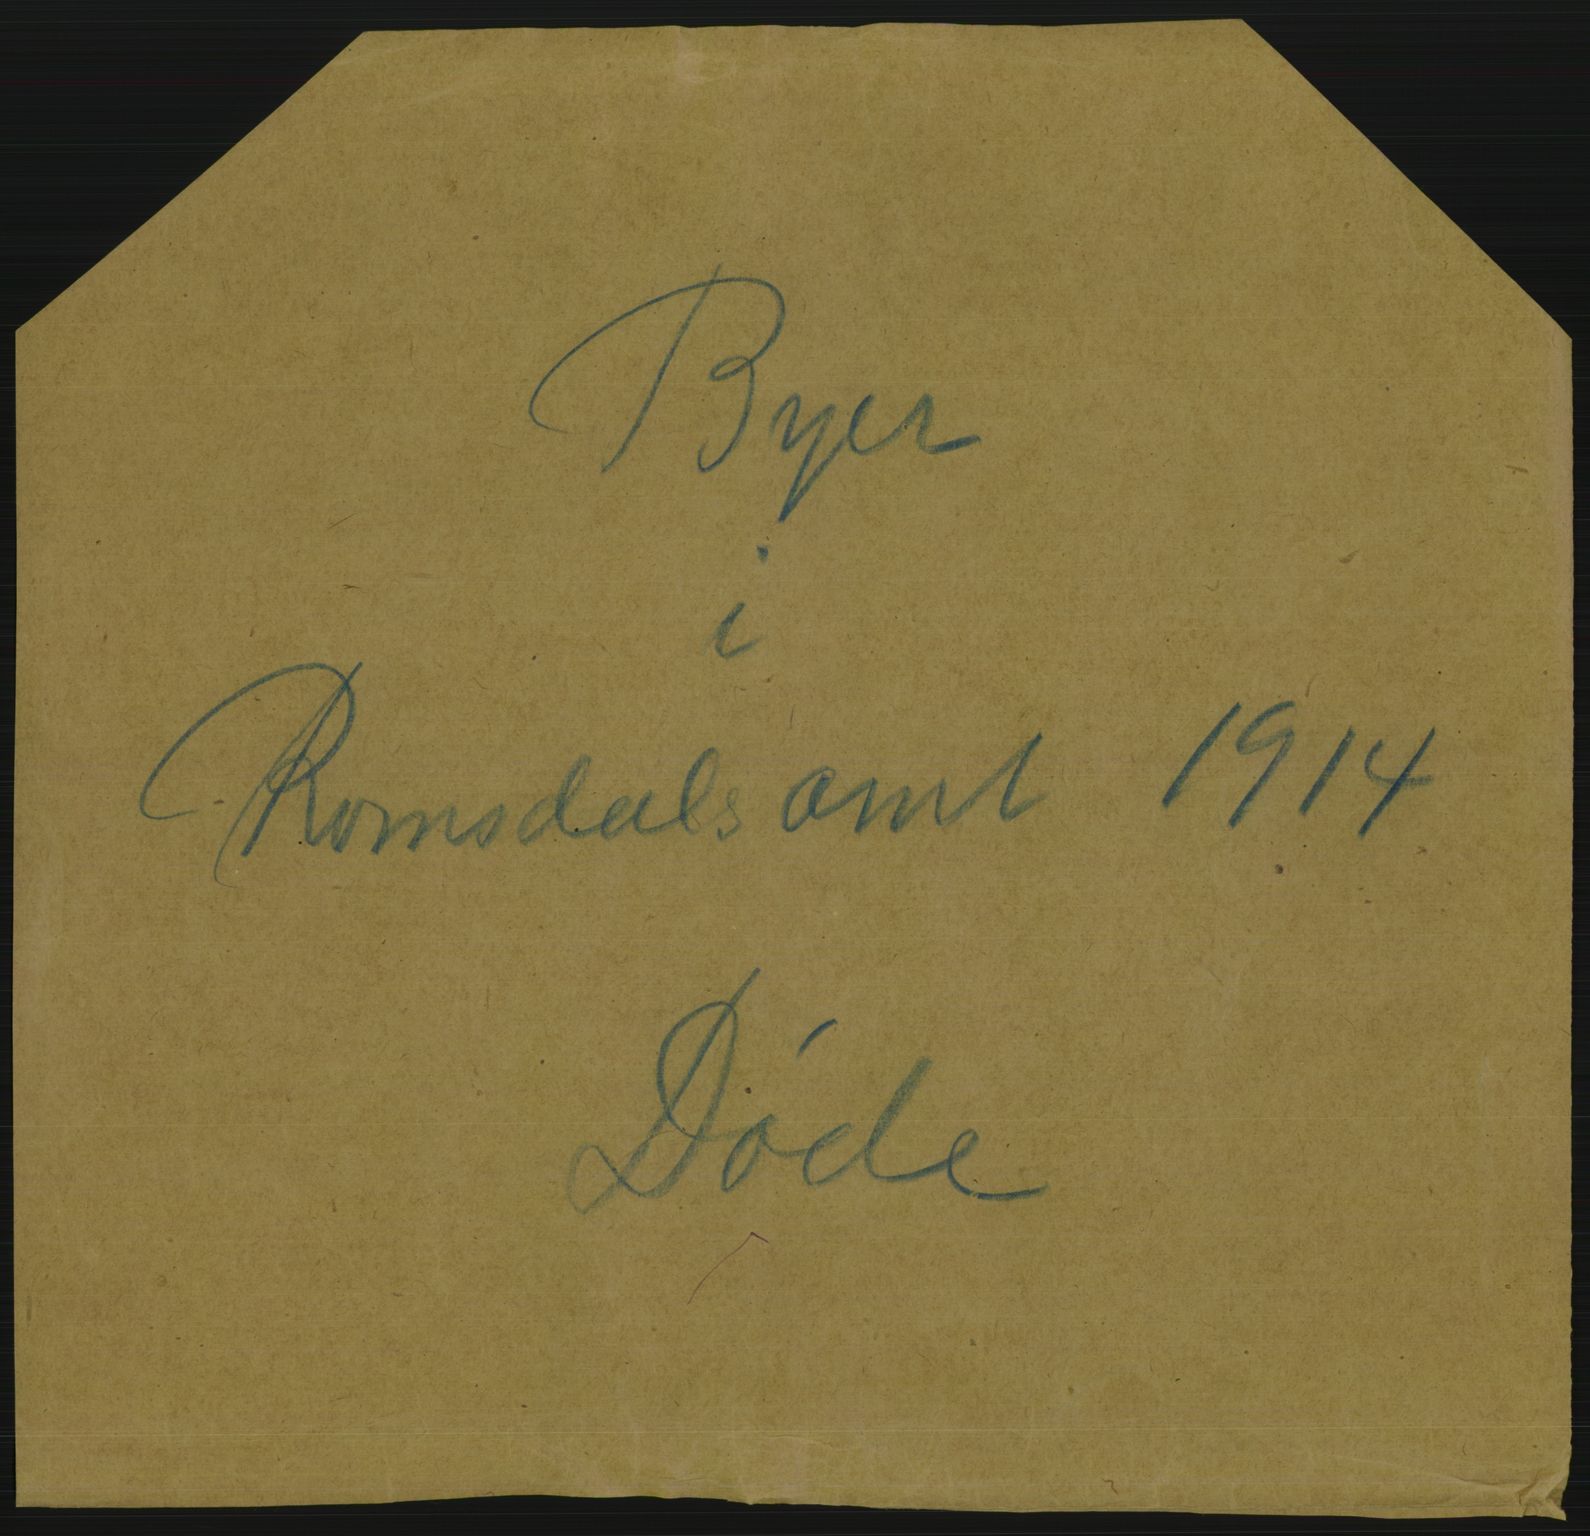 Byer
i
Romsdals amt 1914
Døde